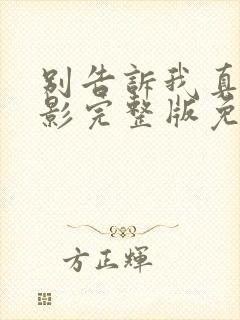 别告訴我真
影完整版免
方正輝